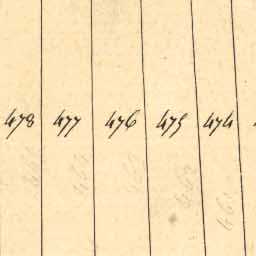 478 477 476 475 474